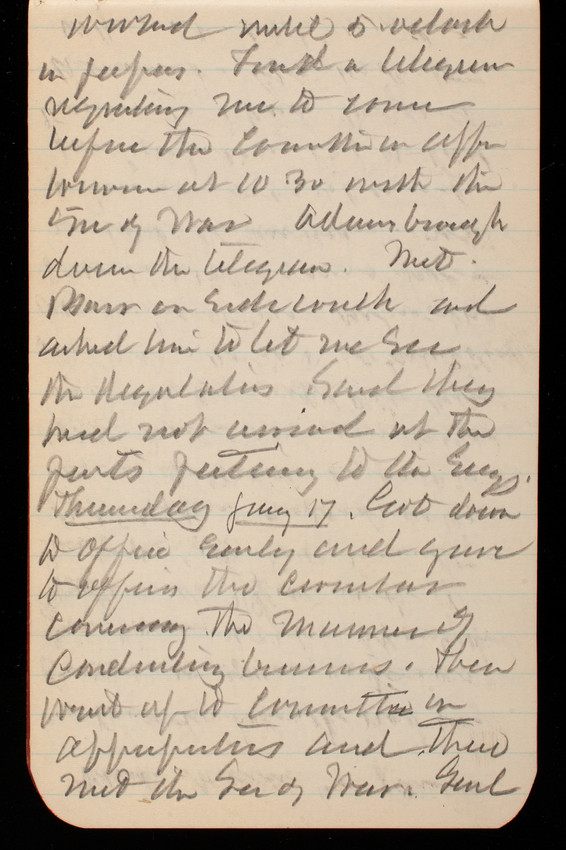 worked until 5 o'clock
on papers. Found a telegram
requesting me to come
before the Committee on appro
tomorrow at 10 30 with the
Sec of War Adams brought
down the telegram. Met
on Sidewalk and
asked him to let me see
the Regulations Said they
had not arrived at the
parts pertaining to the Engs.
Thursday Jany 17. Got down
to office early and gave
to officers the circular
covering the manner of
Conducting business. Then
went up to Committee on
appropriations and there
met the Sec of War. Genl